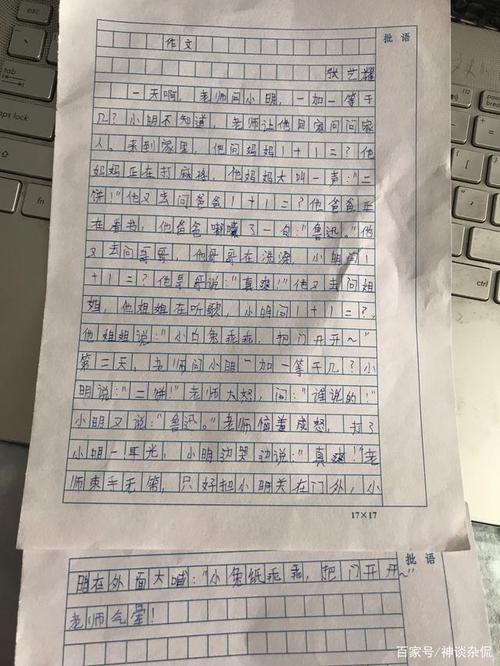 批语
作文
张艺耀
一天啊，老师问小明，一加一等于
几？小明不知道，老师让他回家问问家
人。来到家里，他问妈妈1+1=？他
妈妈正在打麻将，他妈妈大叫一声："二
饼！"他又去问爸爸1+1=？他爸爸正
在看书，他爸爸嘟囔了一句："鲁迅。"他
又去问哥哥，他哥哥在洗澡，小明问1
+1=？他哥哥说："真爽！"他又去问姐
姐，他姐姐在听歌，小明问1+1=？，
他姐姐说："小白兔乖乖，把门开开~"
第二天，老师问小明"一加一等于几？小
明说："二饼！"老师大怒，问："谁说的！"
小明又说："鲁迅。"老师愤怒，打了
小明一耳光，小明边哭边说："真爽！"老
师束手无策，只好把小明关在门外，小
17×17
批语
明在外面大喊："小兔纸乖乖，把门开开~"
老师气晕！
百家号/神谈杂侃